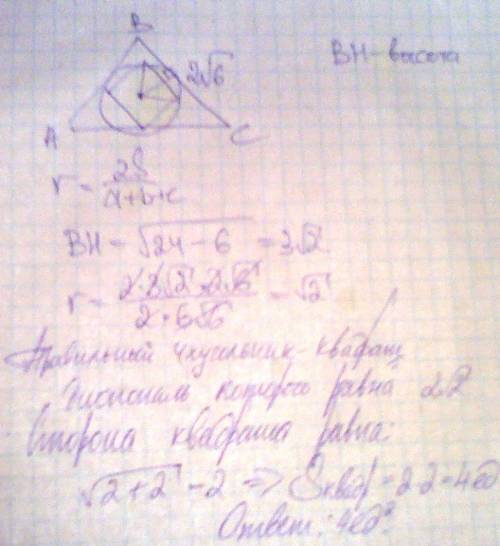 B
2√6
BH - высота
A
C
r = 2S / a+b+c
BH = √24 - 6 = 3√2
r = 2·3√2·2√6 / 2·6√6 = √2
Правильный 4хугольник - квадрат
Диагональ которого равна 2
Сторона квадрата равна:
√2+2 = 2 => Sквадр = 2·2 = 4ед
Ответ: 4ед²